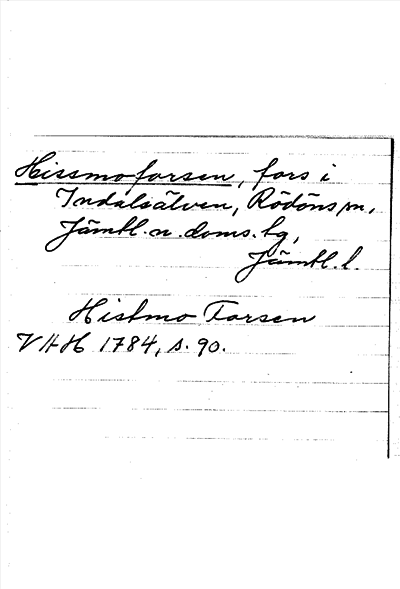 Hissmoforsen, fors i
Indalsälven, Rödöns sn,
Jämtl. n. doms.bg,
Jämtl. l.
Histmo Forsen
VHH 1784, s. 90.